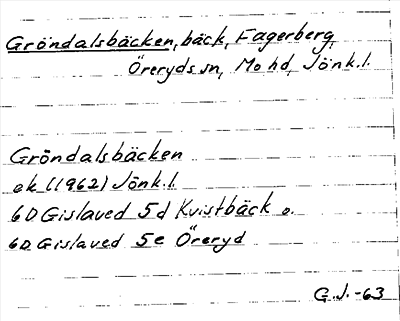 Gröndalsbäcken, bäck, Fagerberg,
Öreryds sn, Mo hd, Jönk.l.
Gröndalsbäcken
ek (1962) Jönk.l.
6D Gislaved 5d Kvistbäck o.
6D Gislaved 5e Öreryd
G.J. -63